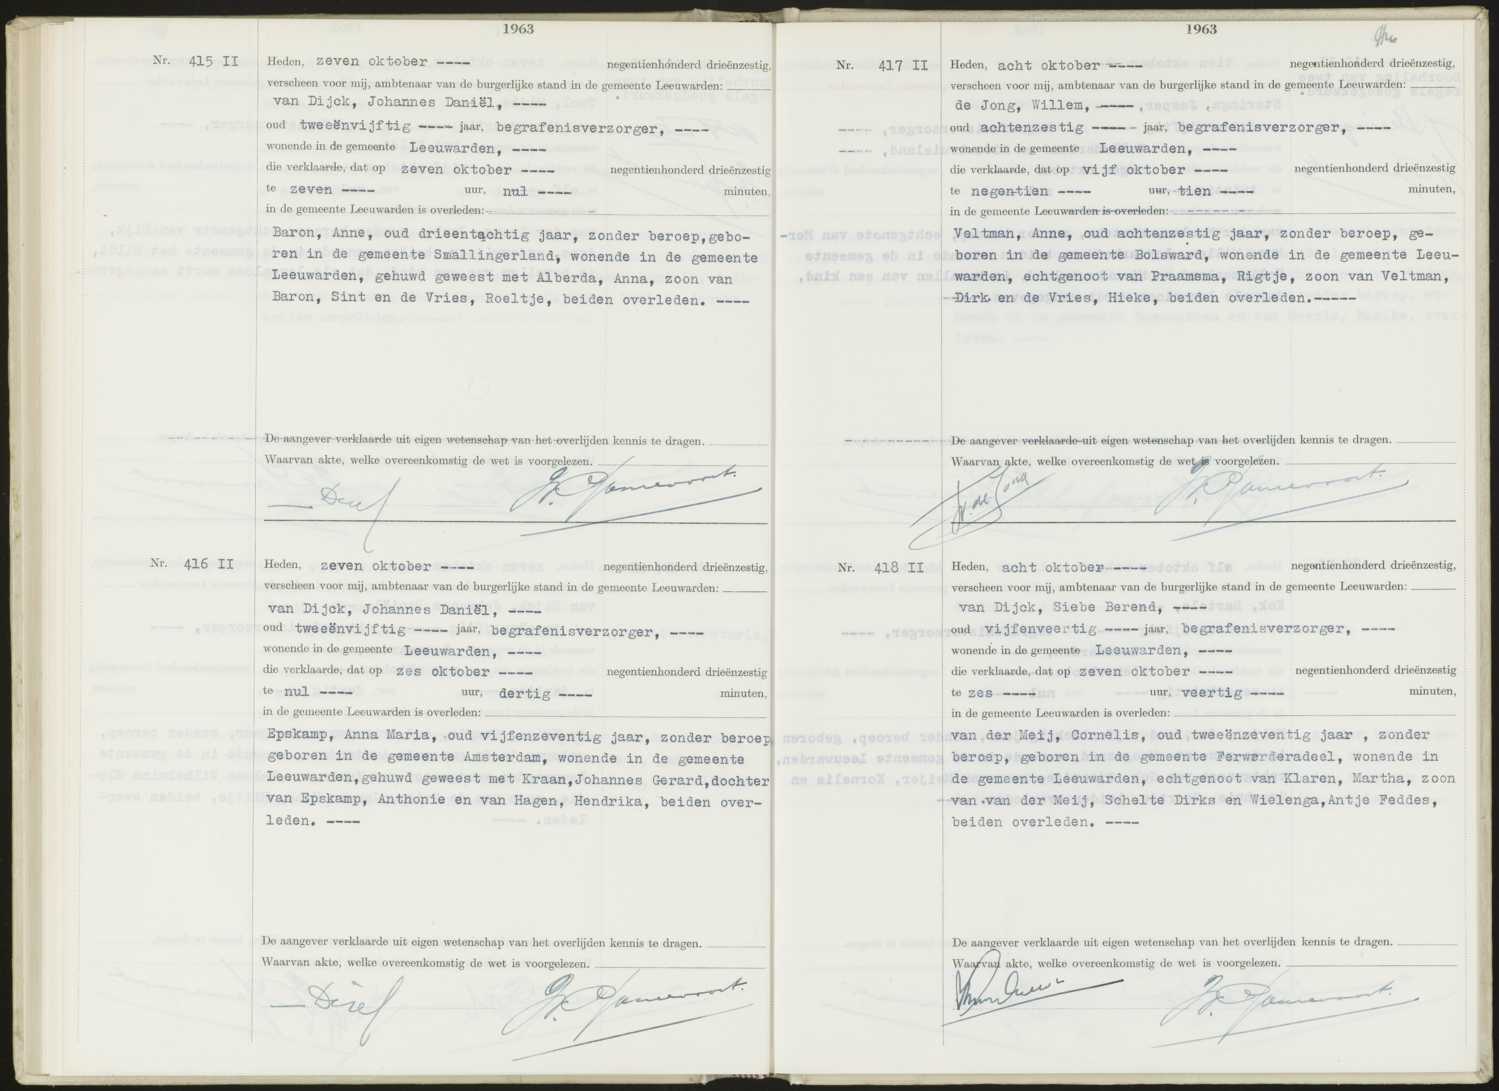 1963
Nr. 415 II
Heden, zeven oktober ---- negentienhonderd drieënzestig,
verscheen voor mij, ambtenaar van de burgerlijke stand in de gemeente Leeuwarden:
van Dijck, Johannes Daniël, ----
oud tweeënvijftig ---- jaar, begrafenisverzorger, ----
wonende in de gemeente Leeuwarden, ----
die verklaarde, dat op zeven oktober ---- negentienhonderd drieënzestig
te zeven ---- uur, nul ---- minuten,
in de gemeente Leeuwarden is overleden:
Baron, Anne, oud drieentachtig jaar, zonder beroep,gebo-
ren in de gemeente Smallingerland, wonende in de gemeente
Leeuwarden, gehuwd geweest met Alberda, Anna, zoon van
Baron, Sint en de Vries, Roeltje, beiden overleden. ----
De aangever verklaarde uit eigen wetenschap van het overlijden kennis te dragen.
Waarvan akte, welke overeenkomstig de wet is voorgelezen.
Nr. 416 II
Heden, zeven oktober ---- negentienhonderd drieënzestig,
verscheen voor mij, ambtenaar van de burgerlijke stand in de gemeente Leeuwarden:
van Dijck, Johannes Daniël, ----
oud tweeënvijftig ---- jaar, begrafenisverzorger, ----
wonende in de gemeente Leeuwarden, ----
die verklaarde, dat op zes oktober ---- negentienhonderd drieënzestig
te nul ---- uur, dertig ---- minuten,
in de gemeente Leeuwarden is overleden:
Epskamp, Anna Maria, oud vijfenzeventig jaar, zonder beroep
geboren in de gemeente Amsterdam, wonende in de gemeente
Leeuwarden,gehuwd geweest met Kraan,Johannes Gerard,dochter
van Epskamp, Anthonie en van Hagen, Hendrika, beiden over-
leden. ----
De aangever verklaarde uit eigen wetenschap van het overlijden kennis te dragen.
Waarvan akte, welke overeenkomstig de wet is voorgelezen.
1963
Nr. 417 II
Heden, acht oktober ---- negentienhonderd drieënzestig,
verscheen voor mij, ambtenaar van de burgerlijke stand in de gemeente Leeuwarden:
de Jong, Willem, ----
oud achtenzestig ---- jaar, begrafenisverzorger, ----
wonende in de gemeente Leeuwarden, ----
die verklaarde, dat op vijf oktober ---- negentienhonderd drieënzestig
te negentien ---- uur, tien ---- minuten,
in de gemeente Leeuwarden is overleden:
Veltman, Anne, oud achtenzestig jaar, zonder beroep, ge-
boren in de gemeente Bolsward, wonende in de gemeente Leeu-
warden, echtgenoot van Praamsma, Rigtje, zoon van Veltman,
Dirk en de Vries, Hieke, beiden overleden.-----
De aangever verklaarde uit eigen wetenschap van het overlijden kennis te dragen.
Waarvan akte, welke overeenkomstig de wet is voorgelezen.
W. de Jong
Nr. 418 II
Heden, acht oktober ---- negentienhonderd drieënzestig,
verscheen voor mij, ambtenaar van de burgerlijke stand in de gemeente Leeuwarden:
van Dijck, Siebe Berend, ----
oud vijfenveertig ---- jaar, begrafenisverzorger, ----
wonende in de gemeente Leeuwarden, ----
die verklaarde, dat op zeven oktober ---- negentienhonderd drieënzestig
te zes ---- uur, veertig ---- minuten,
in de gemeente Leeuwarden is overleden:
van der Meij, Cornelis, oud tweeënzeventig jaar , zonder
beroep, geboren in de gemeente Ferwerderadeel, wonende in
de gemeente Leeuwarden, echtgenoot van Klaren, Martha, zoon
van van der Meij, Schelte Dirks en Wielenga,Antje Feddes,
beiden overleden. ----
De aangever verklaarde uit eigen wetenschap van het overlijden kennis te dragen.
Waarvan akte, welke overeenkomstig de wet is voorgelezen.